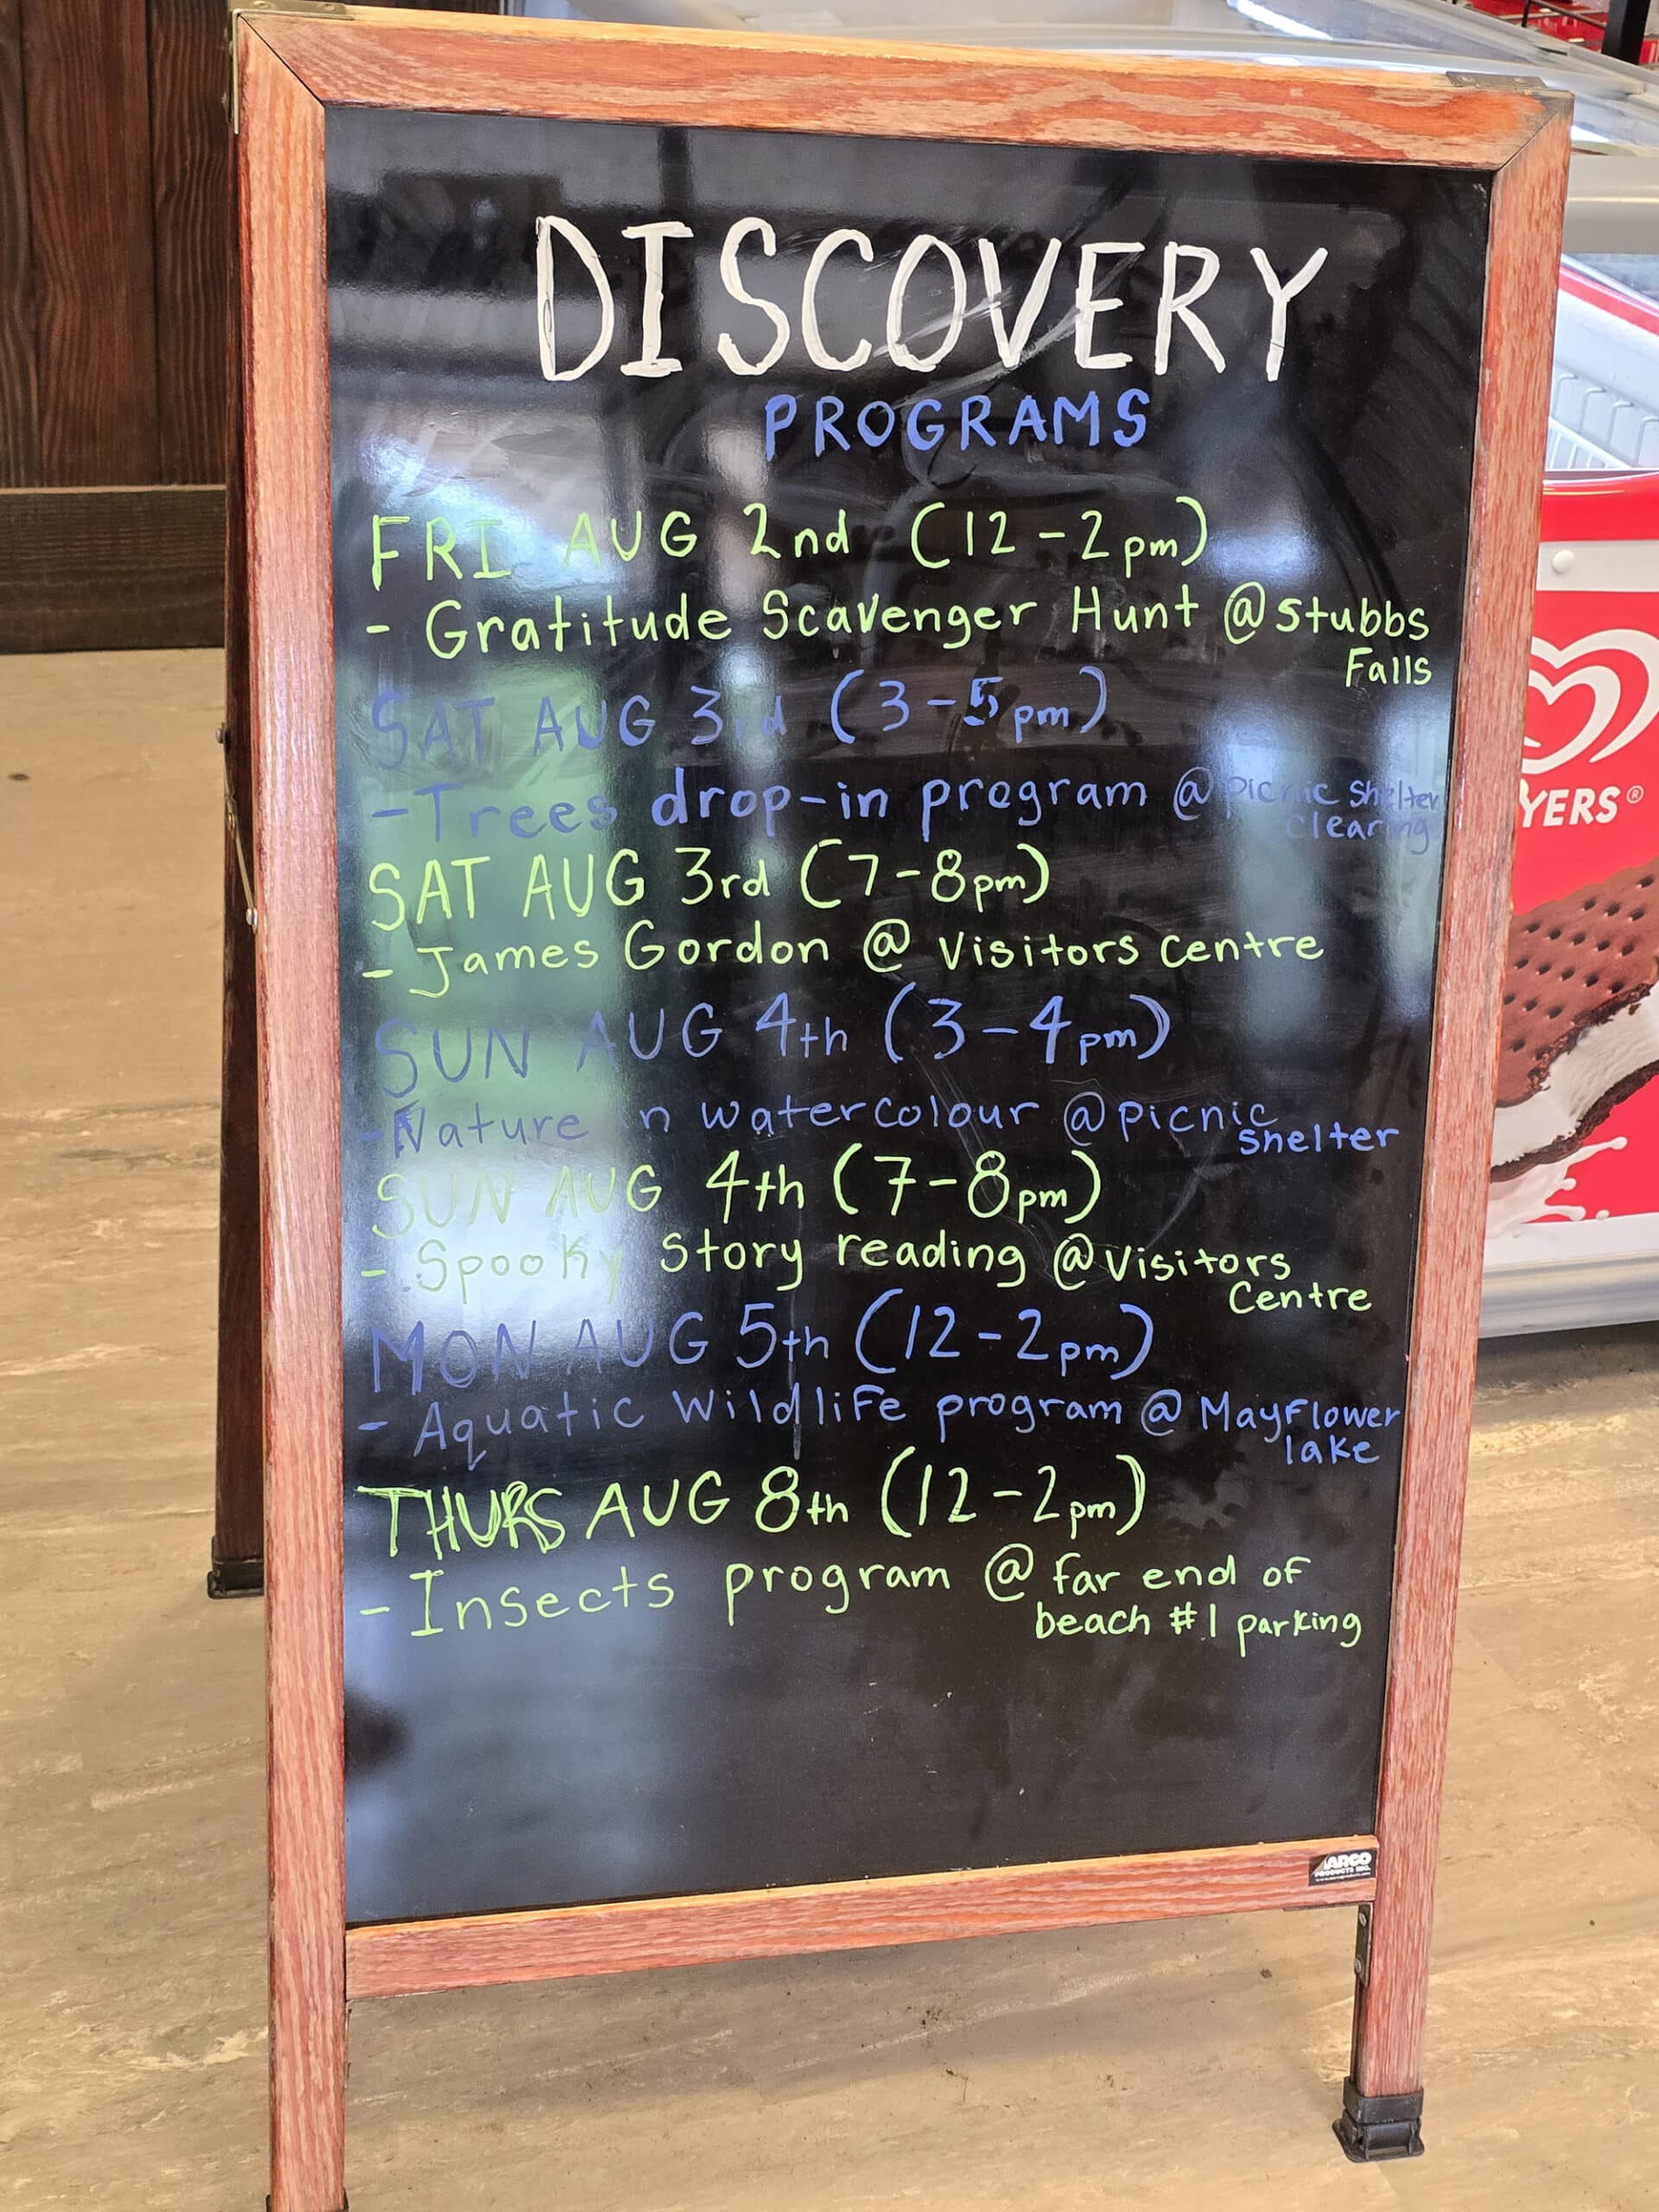 DISCOVERY
PROGRAMS
FRI AUG 2nd (12-2pm)
- Gratitude Scavenger Hunt @ Stubbs
Falls
SAT AUG 3rd (3-5pm)
- Trees drop-in program @ picnic shelter
clearing
SAT AUG 3rd (7-8pm)
- James Gordon @ Visitors Centre
SUN AUG 4th (3-4pm)
- Nature in watercolour @ picnic
shelter
SUN AUG 4th (7-8pm)
- Spooky Story reading @ Visitors
Centre
MON AUG 5th (12-2pm)
- Aquatic Wildlife program @ Mayflower
lake
THURS AUG 8th (12-2pm)
- Insects program @ far end of
beach #1 parking
YERS®
ARGO
PRODUCTS INC.